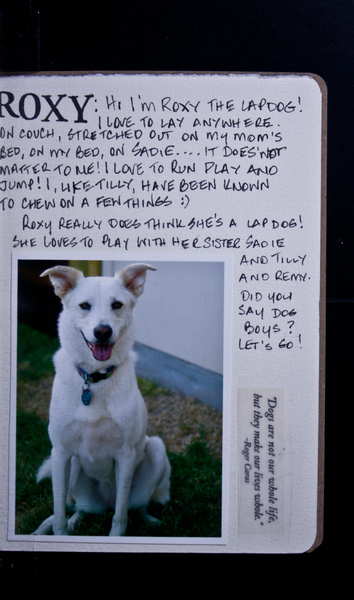 ROXY: Hi I'm ROXY THE LAPDOG!
I LOVE TO LAY ANYWHERE..
ON COUCH, STRETCHED OUT ON MY MOM'S
BED, ON MY BED, ON SADIE.... IT DOES'NOT
MATTER TO ME! I LOVE TO RUN PLAY AND
JUMP! I, LIKE TILLY, HAVE BEEN KNOWN
TO CHEW ON A FEW THINGS :)
ROXY REALLY DOES THINK SHE'S A LAP DOG!
SHE LOVES TO PLAY WITH HER SISTER SADIE
AND TILLY
AND REMY.
DID YOU
SAY DOG
BOYS?
LET'S GO!
"Dogs are not our whole life,
but they make our lives whole."
-Roger Caras